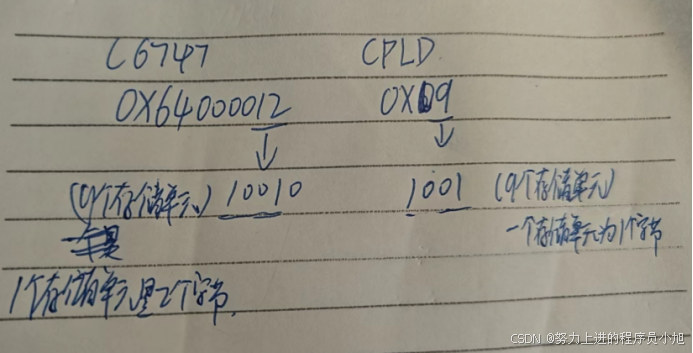 C6747 CPLD
0X64000012 0X09
(9个存储单元) 10010 1001 (9个存储单元)
一个存储单元为1个字节
1个存储单元是2个字节.
CSDN @努力上进的程序员小旭